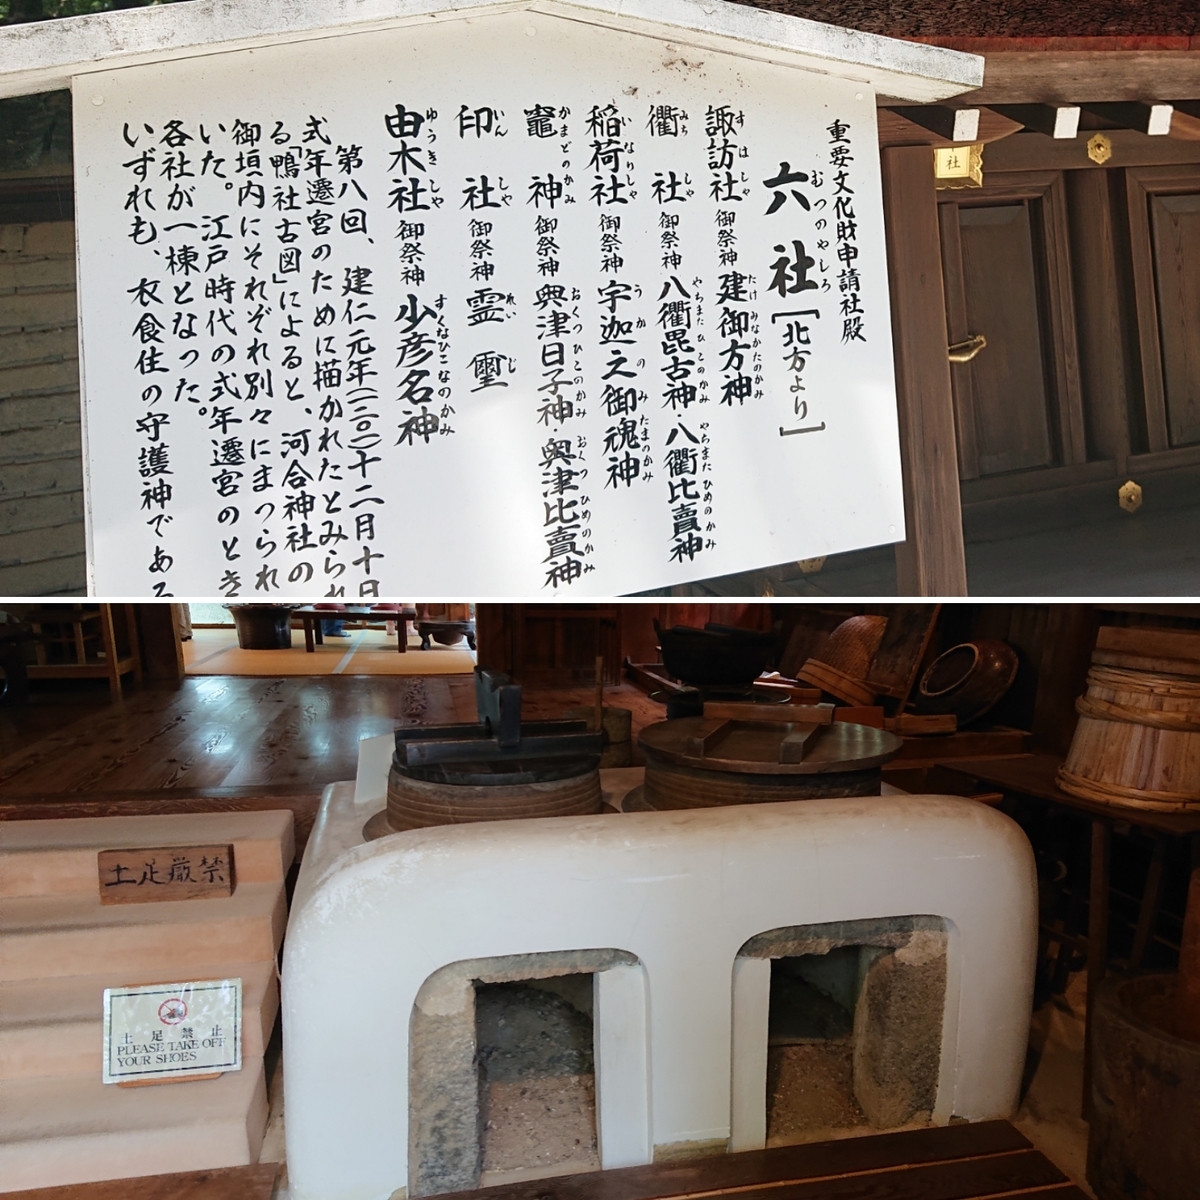 重要文化財申請社殿
六社[北方より]
むつのやしろ
諏訪社 御祭神 建御方神
すはしゃ たけみなかたのかみ
衢社 御祭神 八衢毘古神・八衢比賣神
みちしゃ やちまたひこのかみ やちまたひめのかみ
稲荷社 御祭神 宇迦之御魂神
いなりしゃ うかのみたまのかみ
竈神 御祭神 奥津日子神・奥津比賣神
かまどのかみ おくつひこのかみ おくつひめのかみ
印社 御祭神 霊璽
いんしゃ れいじ
由木社 御祭神 少彦名神
ゆうきしゃ すくなひこなのかみ
第八回、建仁元年(一二〇一)十二月十日
式年遷宮のために描かれたとみられ
る「鴨社古図」によると、河合神社の
御垣内にそれぞれ別々にまつられ
いた。江戸時代の式年遷宮のとき
各社が一棟となった。
いずれも、衣食住の守護神である
社
土足厳禁
土足禁止
PLEASE TAKE OFF
YOUR SHOES